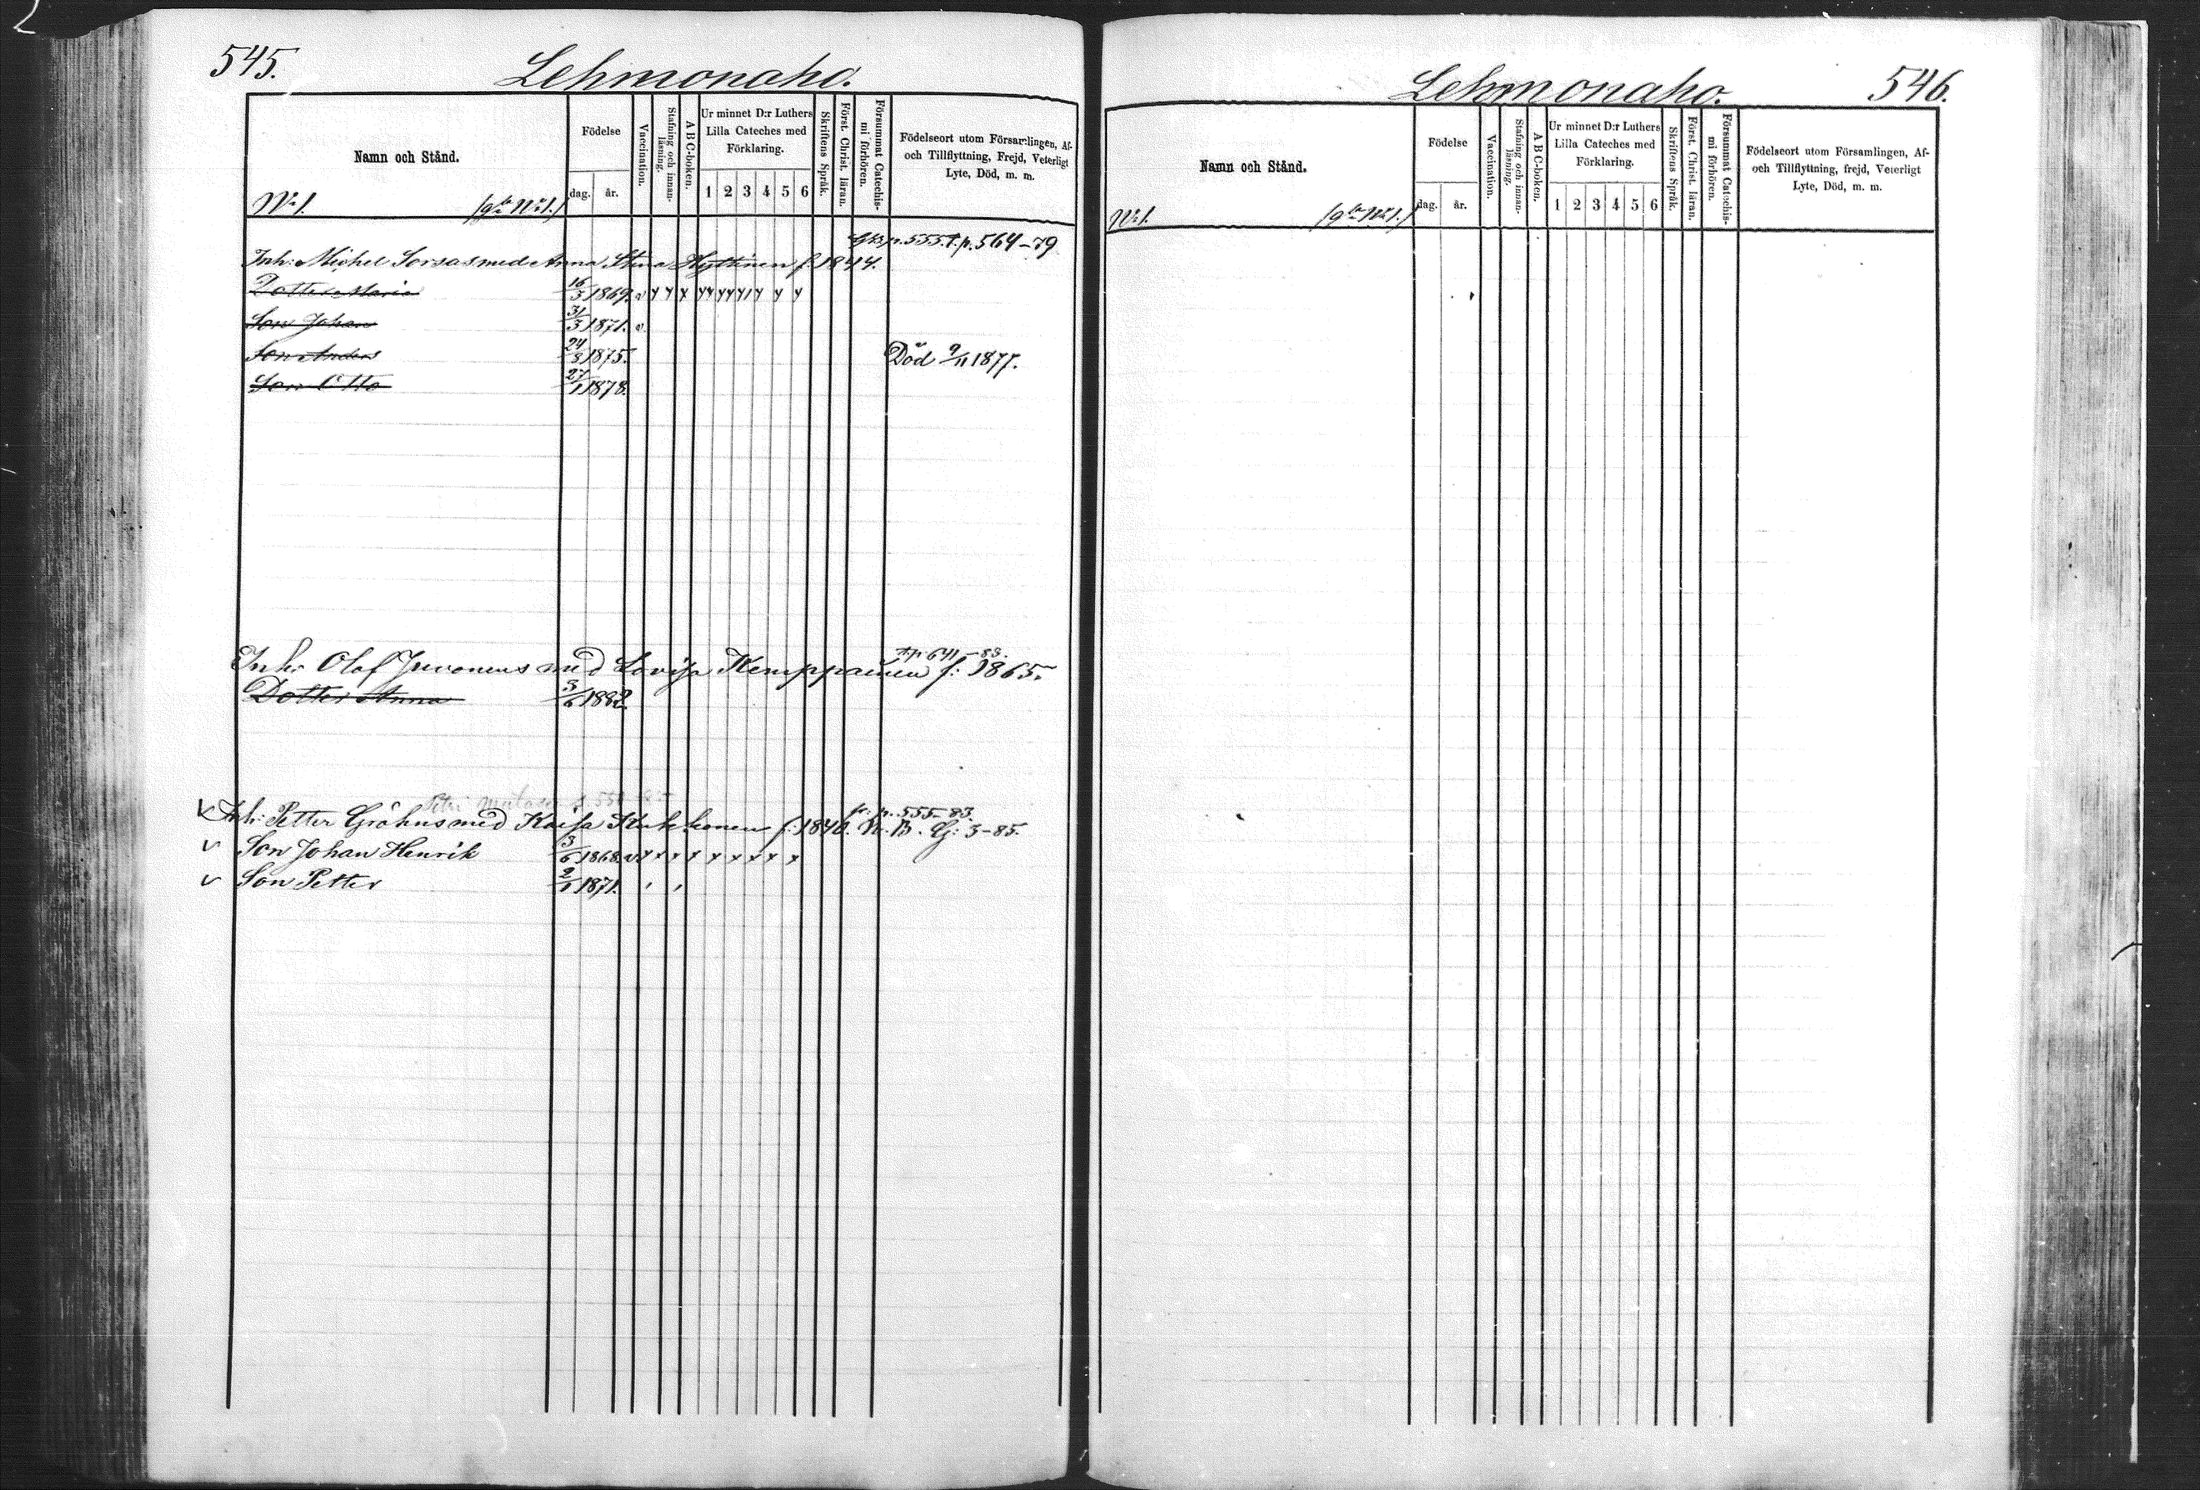 545.
Lehmonaho.
Namn och Stånd.
Födelse
dag. år.
Vaccination.
Stafning och innan-läsning.
A B C-boken.
Ur minnet D:r Luthers
Lilla Cateches med
Förklaring.
1 2 3 4 5 6
Skriftens Språk.
Först. Christ. läran.
Försummat Catechis-mi förhören.
Födelseort utom Församlingen, Af-
och Tillflyttning, Frejd, Veterligt
Lyte, Död, m. m.
No 1. (g:la No 1.)
p. 555. t. p. 564-79
Inh: Michel Sorsas med Anna Stina Hyttinen f. 1844.
Dotter Maria 16/3 1869. v
Son Johan 31/3 1871. v.
Son Anders 24/8 1875. Död 9/11 1877.
Son Otto 27/1 1878.
t. p. 641-83.
Inh: Olof Juvonens med Lovisa Kemppainen f: 1865.
Dotter Anna 3/6 1882
Petri
fr. p. 555-83.
v Inh: Petter Gröhns med Kaisa Kukkonen f. 1840. N. B. G: 3-85.
v Son Johan Henrik 3/6 1868. v
v Son Petter 2/1 1871.
Lehmonaho.
546.
Namn och Stånd.
Födelse
dag. år.
Vaccination.
Stafning och innan-läsning.
A B C-boken.
Ur minnet D:r Luthers
Lilla Cateches med
Förklaring.
1 2 3 4 5 6
Skriftens Språk.
Först. Christ. läran.
Försummat Catechis-mi förhören.
Födelseort utom Församlingen, Af-
och Tillflyttning, frejd, Veterligt
Lyte, Död, m. m.
No 1. (g:la No 1.)